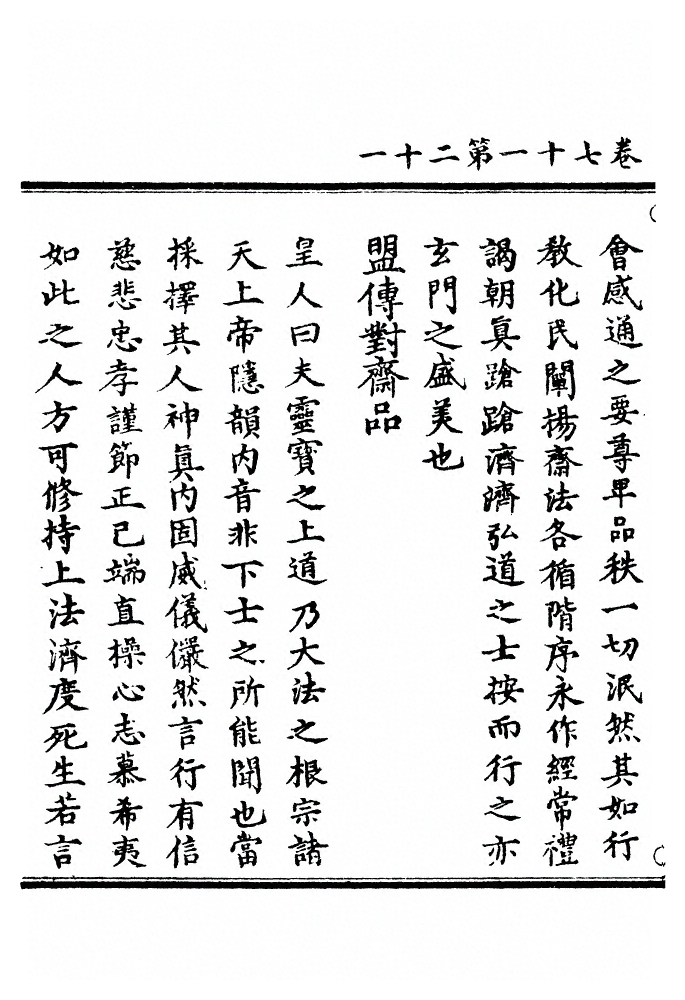 卷七十一第二十一
會感通之要尊卑品秩一切泯然其如行
教化民闡揚齋法各循階序永作經常禮
謁朝眞蹌蹌濟濟弘道之士按而行之亦
玄門之盛美也
盟傳對齋品
皇人曰夫靈寶之上道乃大法之根宗諸
天上帝隱韻內音非下士之所能聞也當
採擇其人神眞內固威儀儼然言行有信
慈悲忠孝謹節正己端直操心志慕希夷
如此之人方可修持上法濟度死生若言